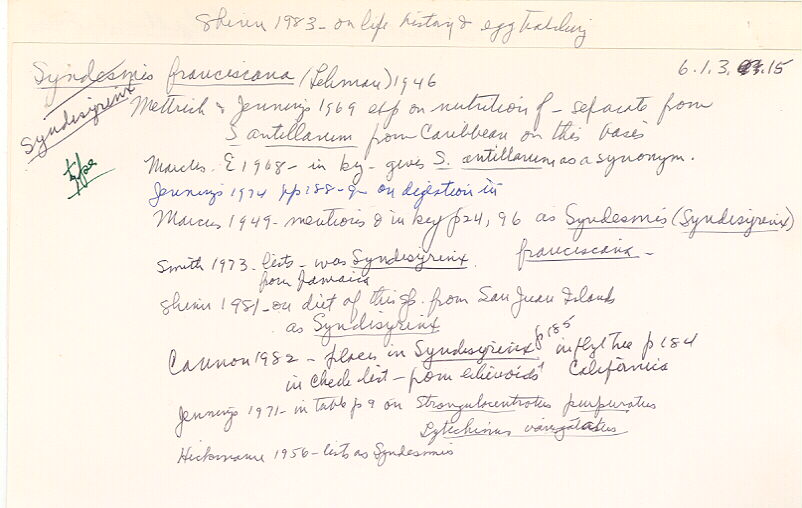 Shinn 1983 - on life history & egg hatching
Syndesmis franciscana (Lehman) 1946
6.1.3.15
Syndisyrinx
Mettrick & Jennings 1969 exp on nutrition of - separate from
S antillarum from Caribbean on this basis
type
Marcus. E 1968 - in key - gives S. antillarum as a synonym.
Jennings 1974 pp 188-9 - on digestion in
Marcus 1949 - mentions & in key p 24, 96 as Syndesmis (Syndisyrinx)
franciscana -
Smith 1973. lists - was Syndisyrinx
from Jamaica
Shinn 1981 - on diet of this sp. from San Juan Islands
as Syndisyrinx
Cannon 1982 - places in Syndisyrinx p 185 in phyl tree p 184
in check list - from echinoids California
Jennings 1971 - in table p 9 on Strongulocentrotus purpuratus
Lytechinus variagatus
Hickmann 1956 - lists as Syndesmis